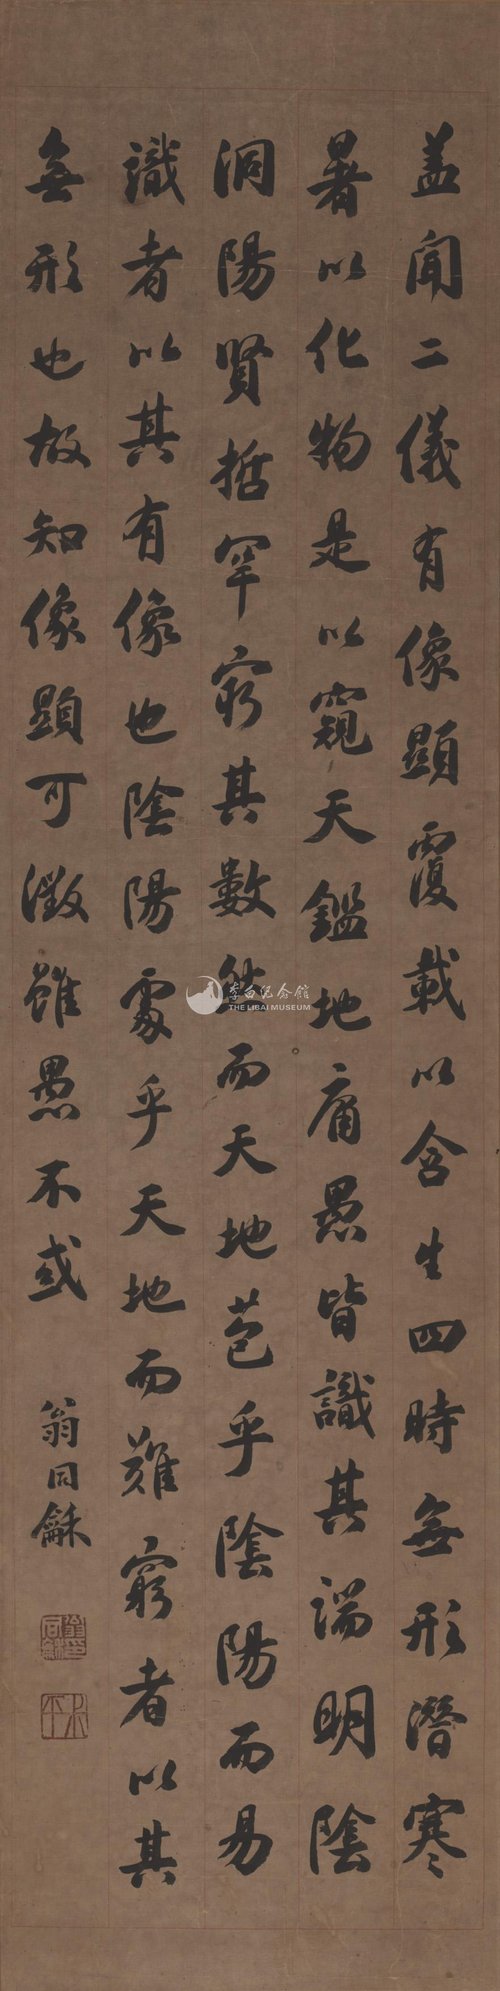 盖闻二儀有像顯覆載以含生四時無形潛寒
暑以化物是以窺天鑑地庸愚皆識其端明陰
洞陽賢哲罕窮其數然而天地苞乎陰陽而易
識者以其有像也陰陽處乎天地而難窮者以其
無形也故知像顯可徵雖愚不或
翁同龢
翁同龢印
叔平
李白纪念馆
THE LIBAI MUSEUM